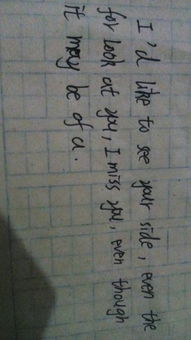 I'd like to see your side, even the
for look at you, I miss you, even though
it may be of u.